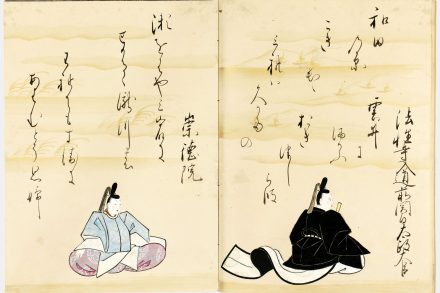 法性寺入道前関白太政大臣
和田
乃原
こき
出て
みれは
久かた
の
雲井に
まかふ
おきつ
しら波
崇徳院
瀬をはやみ岩に
せかるゝ瀧川の
われてもすゑに
あはむとそ思婦